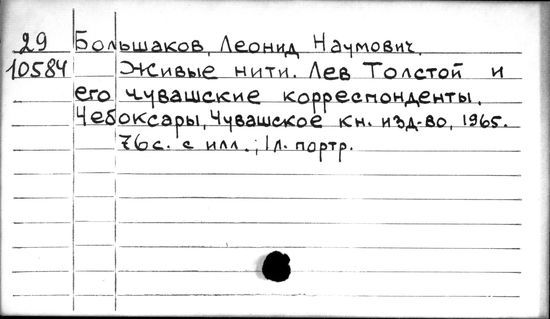 29 Большаков, Леонид Наумович.
10584 Живые нити. Лев Толстой и
его чувашские корреспонденты.
Чебоксары, Чувашское кн. изд-во, 1965.
76 с. с илл.; 1 л. портр.